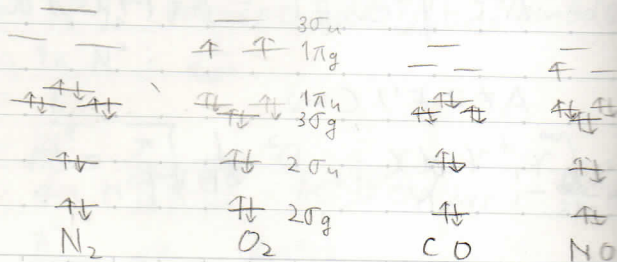 3σu
1πg
1πu
3σg
2σu
2σg
N2 O2 CO NO